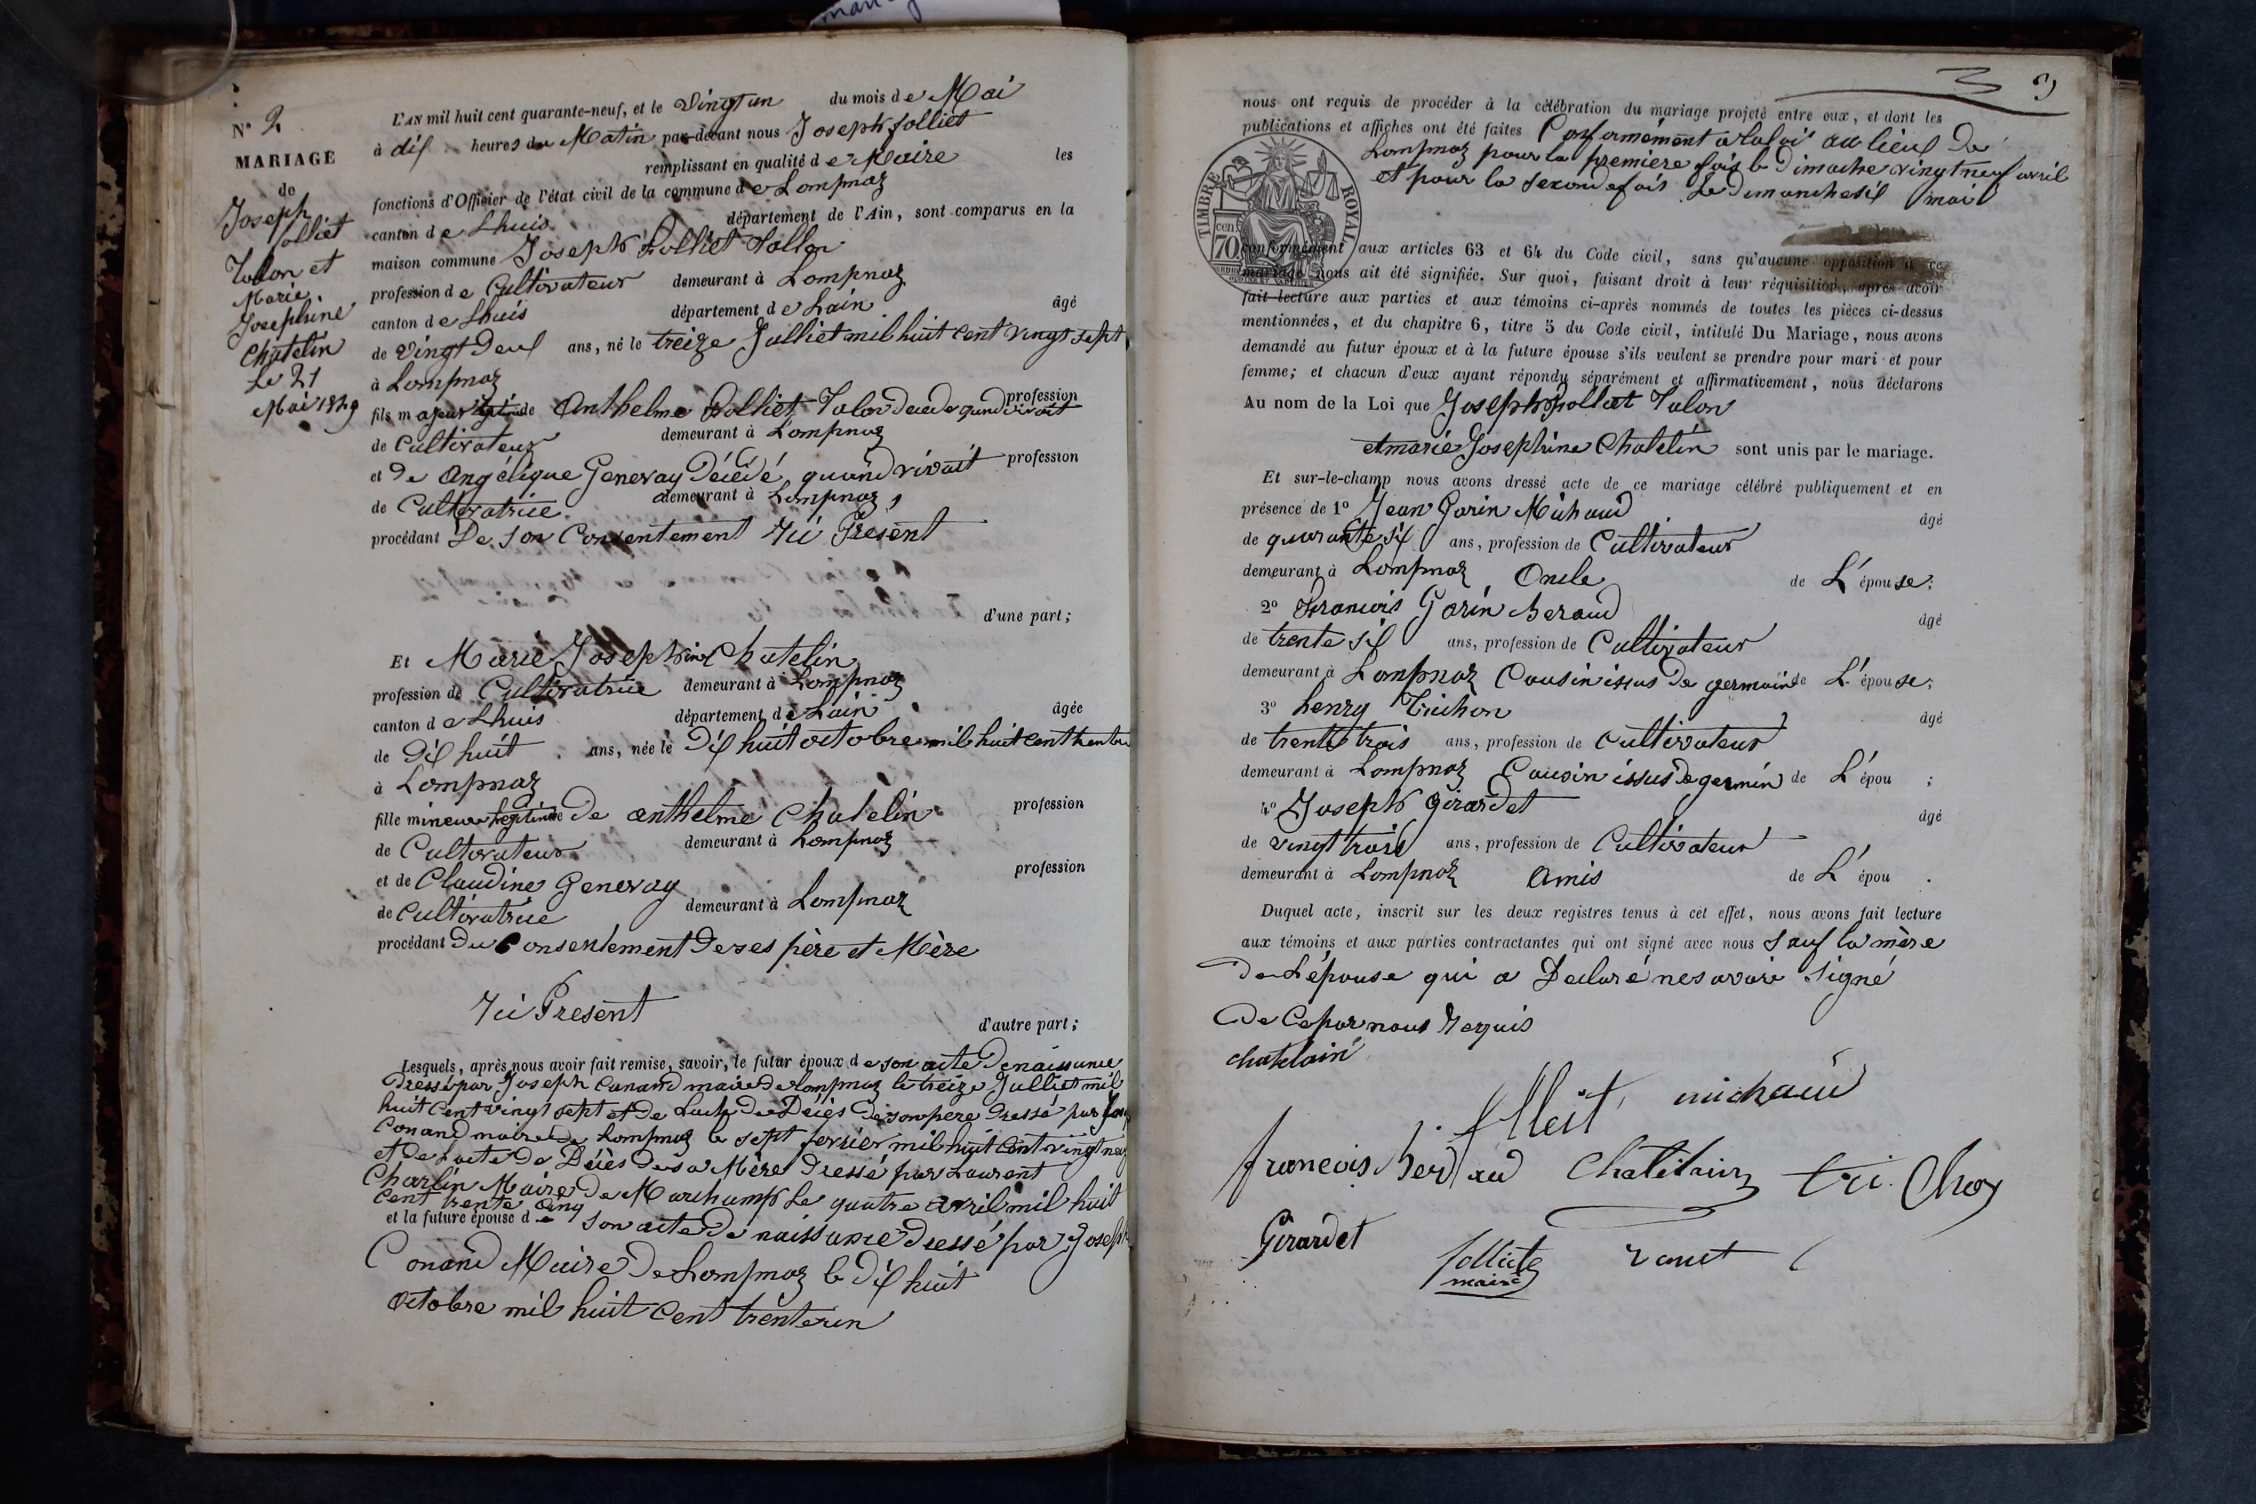 N° 2.
MARIAGE
de
Joseph
Jolliet
Talon et
Marie
Josephine
Chatelin
Le 21
Mai 1849
L'AN mil huit cent quarante-neuf, et le vingt un du mois de Mai
à dix heures du Matin par-devant nous Joseph Jolliet
remplissant en qualité de Maire les
fonctions d'Officier de l'état civil de la commune de Lompnaz
canton de Lhuis département de l'Ain, sont comparus en la
maison commune Joseph Jolliet Tallon
profession de Cultivateur demeurant à Lompnaz
canton de Lhuis département de Lain âgé
de vingt Deux ans, né le treize Julliet mil huit cent vingt sept
à Lompnaz
fils majeur légitime de Anthelme Jolliet Talon decede quand vivait profession
de Cultivateur demeurant à Lompnaz
et de Angélique Genevay Décédé quand vivait profession
de Cultivatrice demeurant à Lompnaz
procédant De Son Consentement Ici Présent
d'une part;
Et Marie Josephine Chatelin
profession de Cultivatrice demeurant à Lompnaz
canton de Lhuis département de Lain âgée
de Dix huit ans, née le Dix huit octobre mil huit cent trente un
à Lompnaz
fille mineure légitime de anthelme Chatelin profession
de Cultivateur demeurant à Lompnaz
et de Claudine Genevay profession
de Cultivatrice demeurant à Lompnaz
procédant Du Consentement De ses père et Mère
Ici Présent
d'autre part;
Lesquels, après nous avoir fait remise, savoir, le futur époux de son acte De naissance
Dressé par Joseph Conand maire De Lompnaz le treize Julliet mil
huit Cent vingt sept et de Lacte De Décès de son père Dressé par
Conand maire De Lompnaz le sept fevrier mil huit cent vingt neuf
et De Lacte De Décès De sa Mère Dressé par Laurent
Charlin Maire De Marchamp Le quatre avril mil huit
cent trente cinq
et la future épouse de son acte De naissance Dressé par Joseph
Conand Maire De Lompnaz le Dix huit
octobre mil huit Cent trente un
3
nous ont requis de procéder à la célébration du mariage projeté entre eux, et dont les
publications et affiches ont été faites Conformément a la loi au lieu De
Lompnaz pour la premiere fois le Dimanche vingt neuf avril
et pour la seconde fois Le Dimanche six mai
TIMBRE ROYAL
70 cent
conformément aux articles 63 et 64 du Code civil, sans qu'aucune opposition à ce
mariage nous ait été signifiée. Sur quoi, faisant droit à leur réquisition, après avoir
fait lecture aux parties et aux témoins ci-après nommés de toutes les pièces ci-dessus
mentionnées, et du chapitre 6, titre 5 du Code civil, intitulé Du Mariage, nous avons
demandé au futur époux et à la future épouse s'ils veulent se prendre pour mari et pour
femme; et chacun d'eux ayant répondu séparément et affirmativement, nous déclarons
Au nom de la Loi que Joseph Jolliet Talon
et marie Josephine Chatelin sont unis par le mariage.
Et sur-le-champ nous avons dressé acte de ce mariage célébré publiquement et en
présence de 1° Jean Garin Michaud âgé
de quarante six ans, profession de Cultivateur
demeurant à Lompnaz Oncle de L'épouse;
2° Francois Garin Beraud âgé
de trente six ans, profession de Cultivateur
demeurant à Lompnaz Cousin issus De germain de L'épouse;
3° henry Trichon âgé
de trente trois ans, profession de Cultivateur
demeurant à Lompnaz Cousin issus De germin de L'épou ;
4° Joseph Girardet âgé
de vingt trois ans, profession de Cultivateur
demeurant à Lompnaz Amis de L'épou .
Duquel acte, inscrit sur les deux registres tenus à cet effet, nous avons fait lecture
aux témoins et aux parties contractantes qui ont signé avec nous Sauf la mère
De Lépouse qui a Déclaré ne savoir signé
De Ce par nous Requis
chatelain
michaud
francois Beraud Chatelain
Girardet
Jolliet
maire